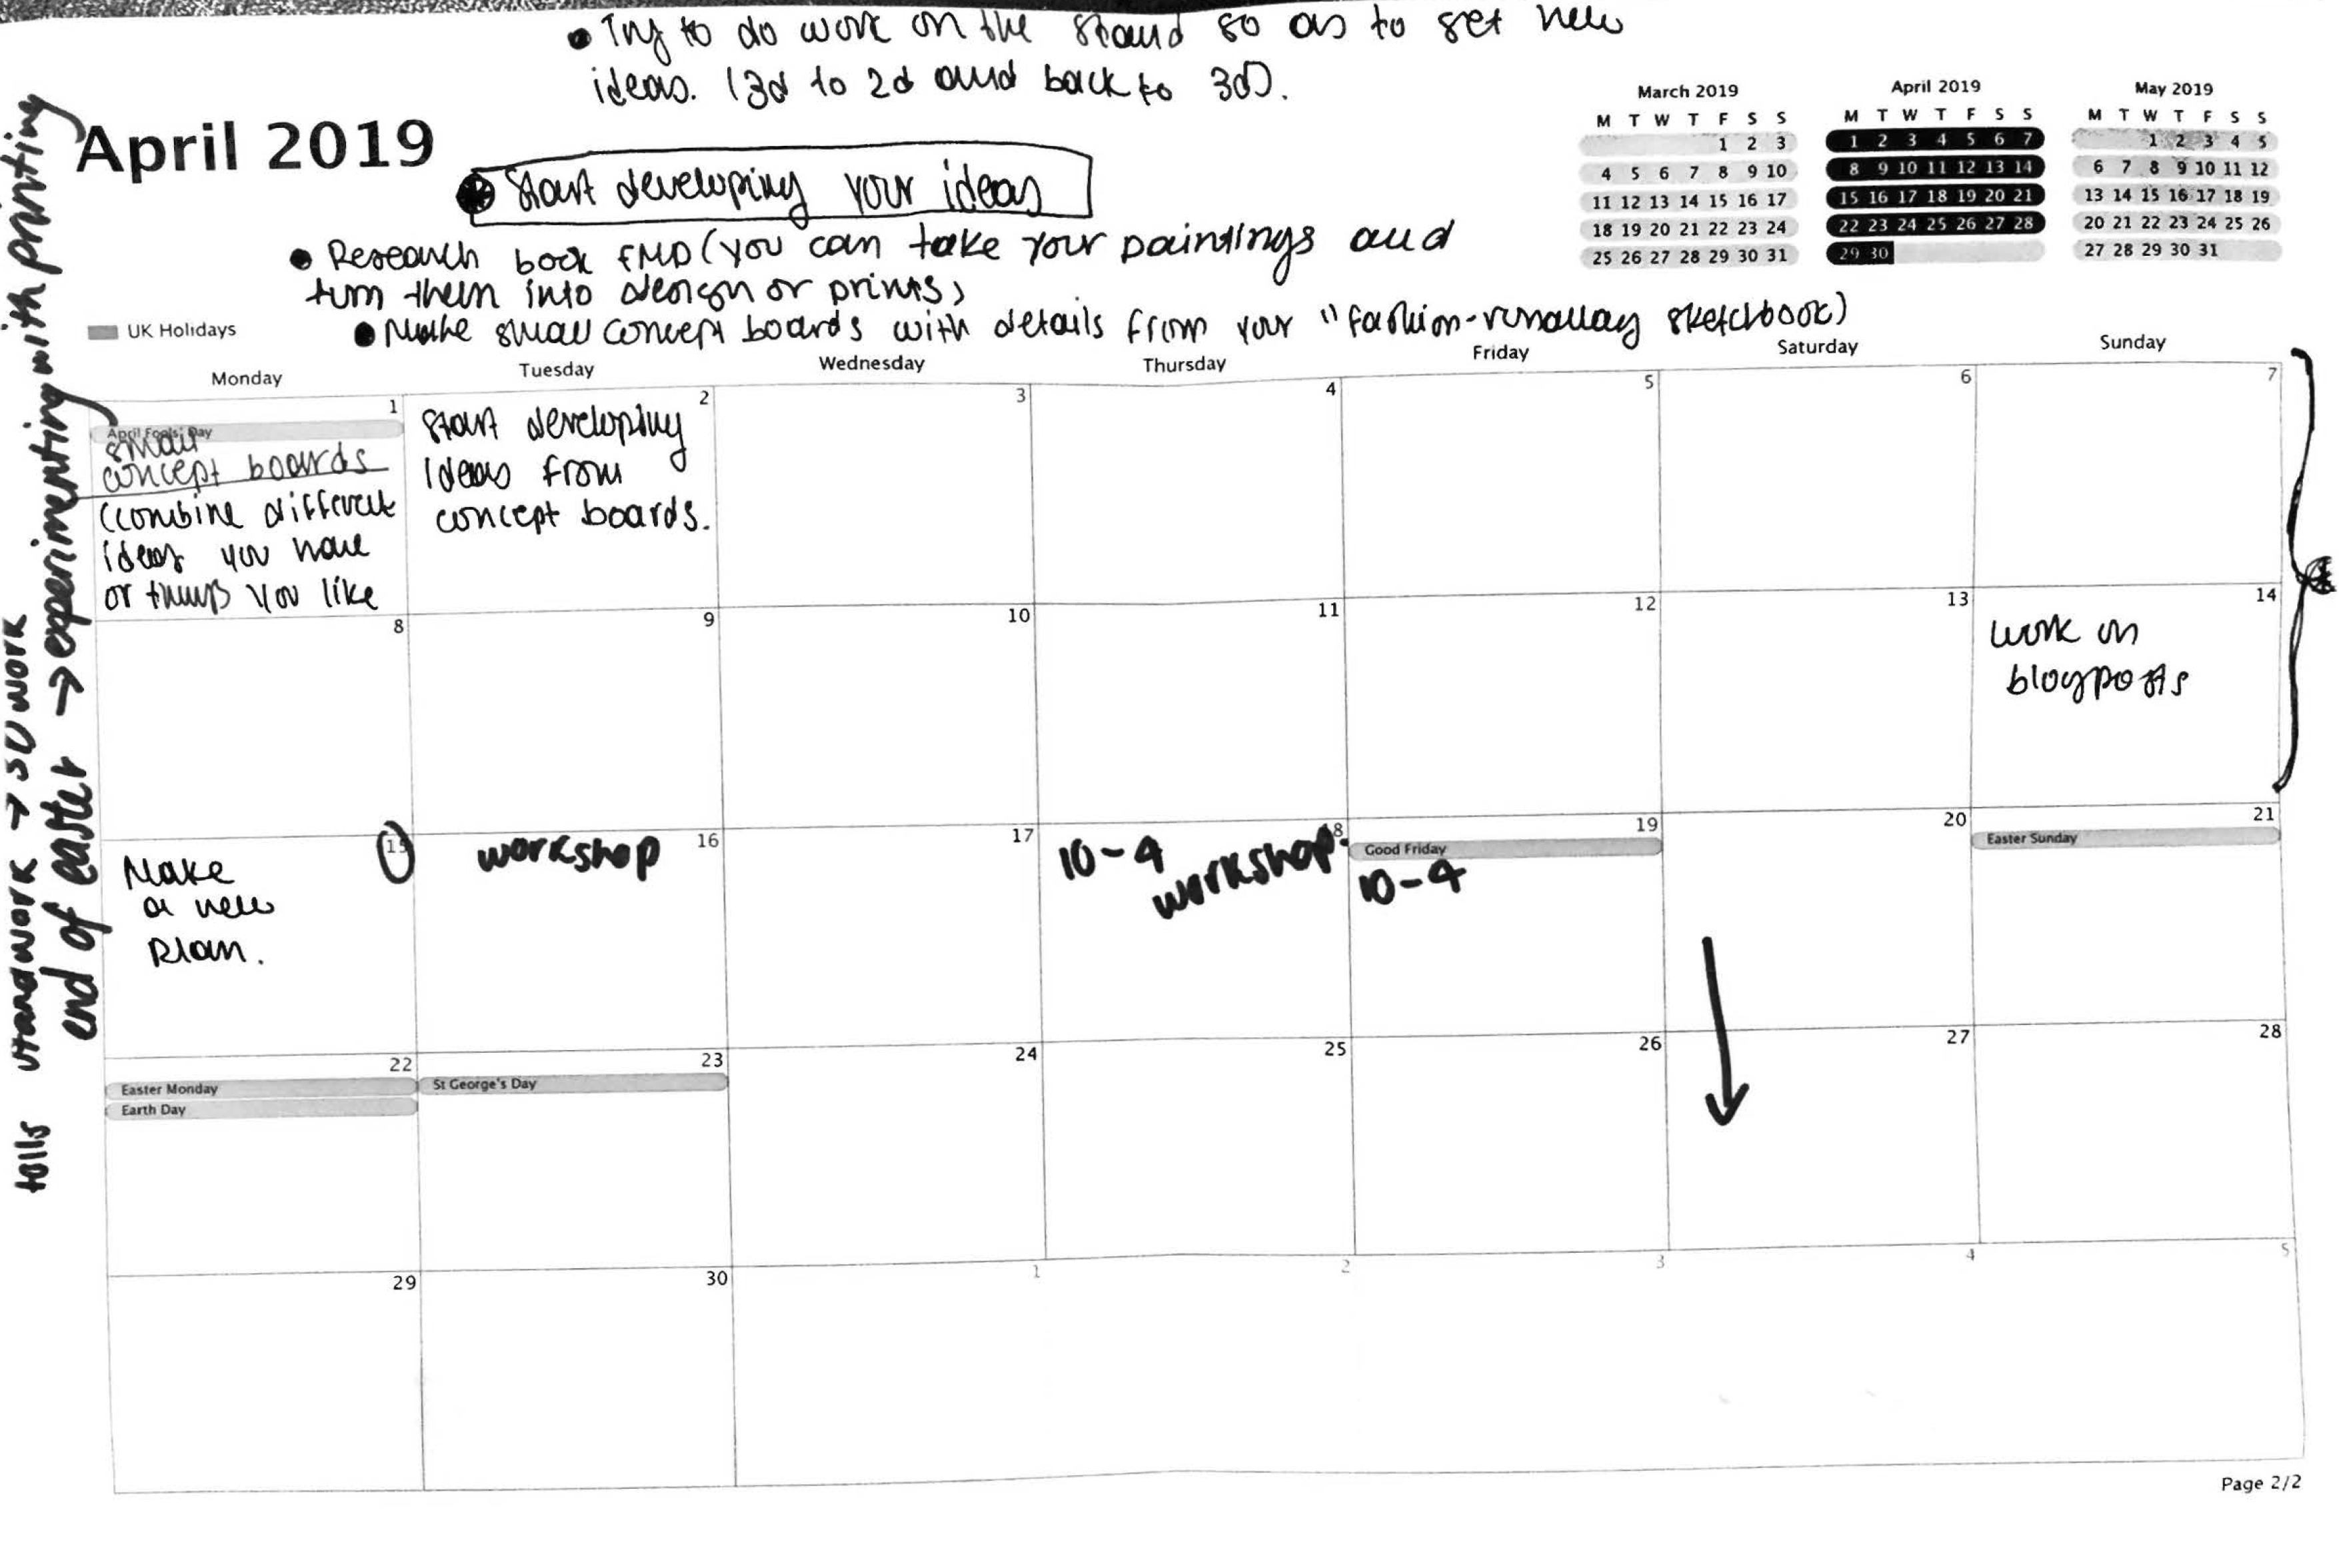 • Try to do work on the stand so as to get new
ideas. (3d to 2d and back to 3d).
April 2019
Start developing your ideas
• Research book FMP (you can take your paintings and
turn them into design or prints)
• Make small concept boards with details from your "fashion-runaway sketchbook)
UK Holidays
March 2019
M T W T F S S
1 2 3
4 5 6 7 8 9 10
11 12 13 14 15 16 17
18 19 20 21 22 23 24
25 26 27 28 29 30 31
April 2019
M T W T F S S
1 2 3 4 5 6 7
8 9 10 11 12 13 14
15 16 17 18 19 20 21
22 23 24 25 26 27 28
29 30
May 2019
M T W T F S S
1 2 3 4 5
6 7 8 9 10 11 12
13 14 15 16 17 18 19
20 21 22 23 24 25 26
27 28 29 30 31
Monday Tuesday Wednesday Thursday Friday Saturday Sunday
1 2 3 4 5 6 7
April Fools' Day
small
concept boards
(combine different
ideas you have
or things you like
Start developing
ideas from
concept boards.
8 9 10 11 12 13 14
work on
blogposts
15 16 17 18 19 20 21
Make
a new
plan.
workshop
10-4
workshop
Good Friday
10-4
Easter Sunday
22 23 24 25 26 27 28
Easter Monday
Earth Day
St George's Day
29 30 1 2 3 4 5
Page 2/2
standwork → 3D work
end of easter → experimenting with printing